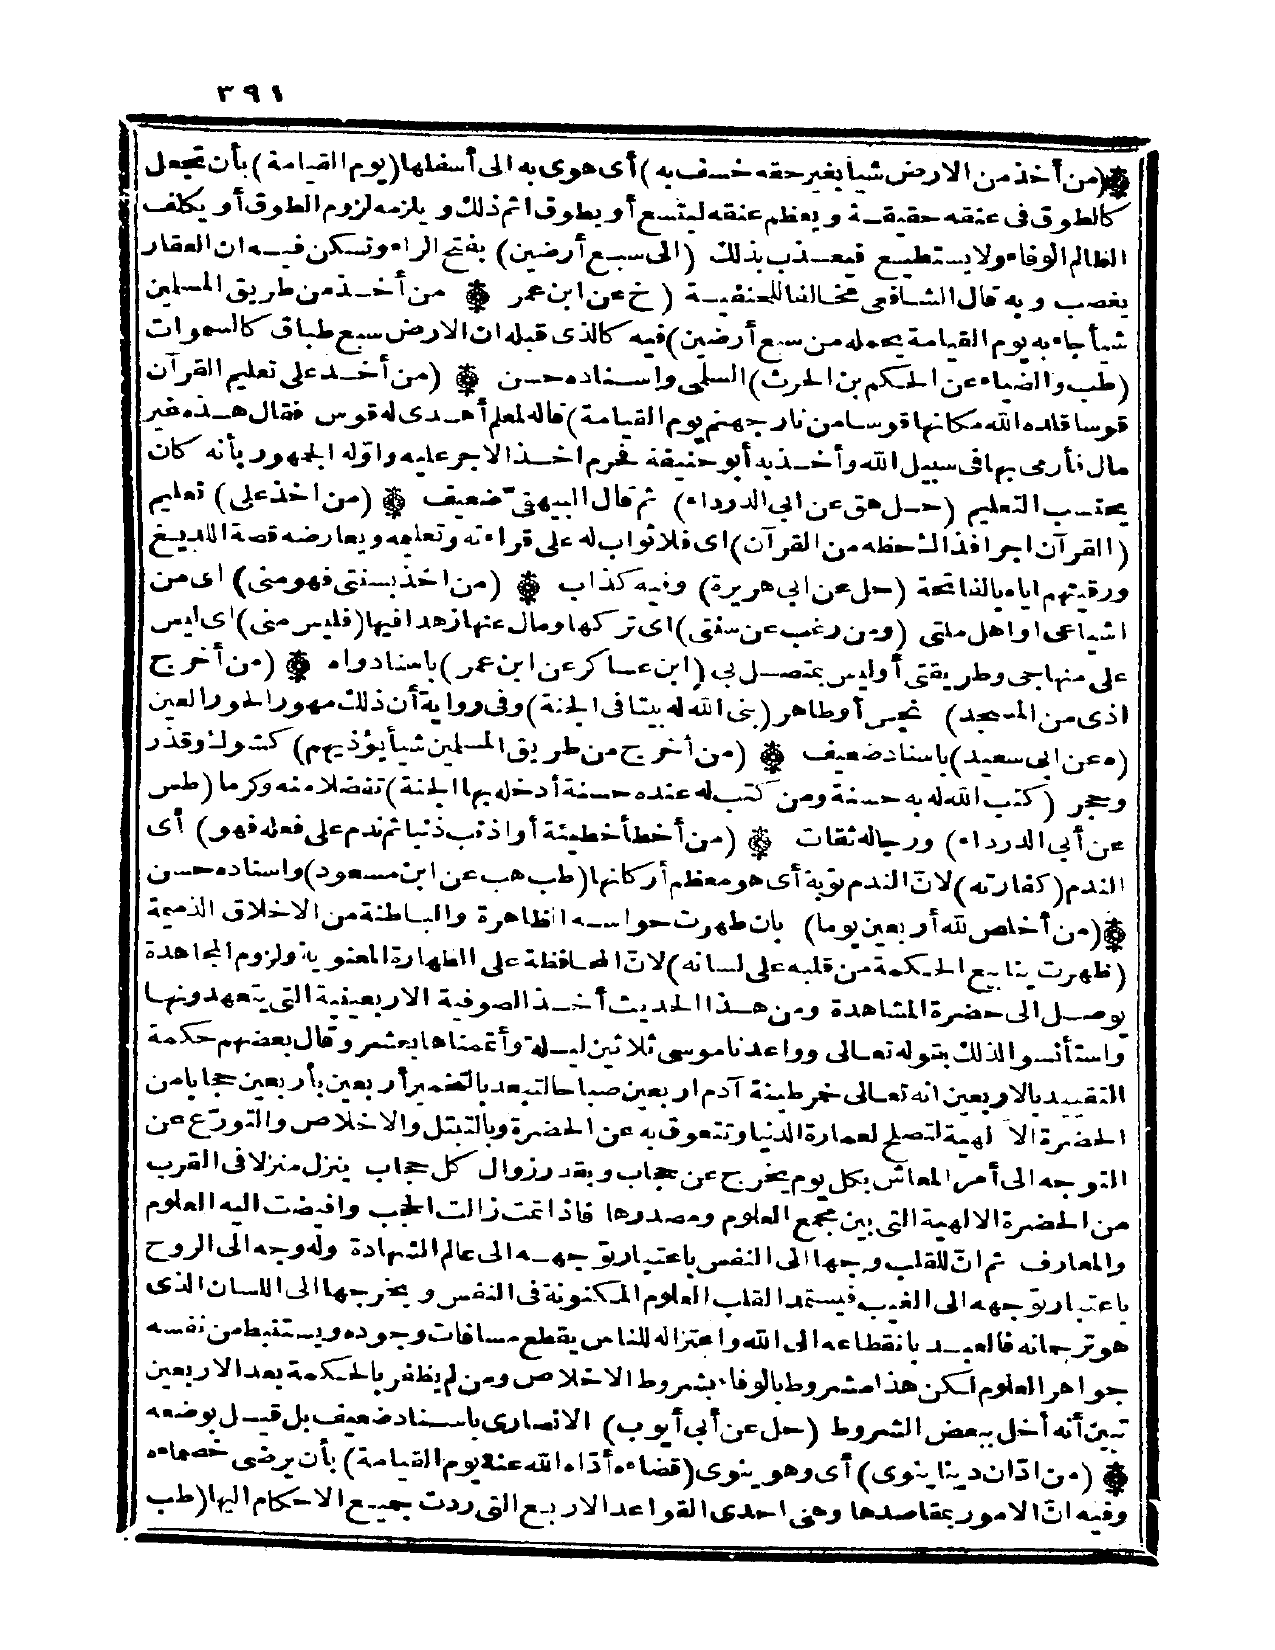 ٣٩١
(من أخذ من الارض شيأ بغير حقه خسف به) أى هوى به الى أسفلها (يوم القيامة) بأن تجعل
كالطوق فى عنقه حقيقة ويعظم عنقه ليتسع أو يطوق اثم ذلك ويلزمه لزوم الطوق أو يكلف
الظالم الوفاء ولا يستطيع فيعذب بذلك (الى سبع أرضين) بفتح الراء وتسكن فيه ان العقار
يغصب وبه قال الشافعى مخالفا للحنفية (خ عن ابن عمر ۞ من أخذ من طريق المسلمين
شيأ جاء به يوم القيامة يحمله من سبع أرضين) فيه كالذى قبله ان الارض سبع طباق كالسموات
(طب والضياء عن الحكم بن الحرث) السلمى واسناده حسن ۞ (من أخذ على تعليم القرآن
قوسا قلده الله مكانها قوسا من نار جهنم يوم القيامة) قاله لمعلم أهدى له قوس فقال هذه غير
مال فأرمى بها فى سبيل الله وأخذ به أبو حنيفة فحرم اخذ الاجر عليه واوّله الجمهور بأنه كان
يحتسب التعليم (حل هق عن ابى الدرداء) ثم قال البيهقى ضعيف ۞ (من اخذ على) تعليم
(القرآن اجرا فذاك حظه من القرآن) اى فلا ثواب له على قراءته وتعليمه ويعارضه قصة اللديغ
ورقيتهم اياه بالفاتحة (حل عن ابى هريرة) وفيه كذاب ۞ (من اخذ بسنتى فهو منى) اى من
اشياعى او اهل ملتى (ومن رغب عن سنتى) اى تركها ومال عنها زهدا فيها (فليس منى) اى ليس
على منهاجى وطريقتى أو ليس بمتصل بى (ابن عساكر عن ابن عمر) باسناد واه ۞ (من أخرج
اذى من المسجد) نجس أو طاهر (بنى الله له بيتا فى الجنة) وفى رواية أن ذلك مهور الحور العين
(ه عن ابى سعيد) باسناد ضعيف ۞ (من أخرج من طريق المسلمين شيأ يؤذيهم) كشوك وقذر
وحجر (كتب الله له به حسنة ومن كتب له عنده حسنة أدخله بها الجنة) تفضلا منه وكرما (طس
عن أبى الدرداء) ورجاله ثقات ۞ (من أخطأ خطيئة أو اذنب ذنبا ثم ندم على فعله فهو) أى
الندم (كفارته) لانّ الندم توبة أى هو معظم أركانها (طب هب عن ابن مسعود) واسناده حسن
۞ (من أخلص لله أربعين يوما) بان طهرت حواسه الظاهرة والباطنة من الاخلاق الذميمة
(ظهرت ينابيع الحكمة من قلبه على لسانه) لانّ المحافظة على الطهارة المعنوية ولزوم المجاهدة
يوصل الى حضرة المشاهدة ومن هذا الحديث أخذ الصوفية الاربعينية التى يتعهدونها
واستأنسوا لذلك بقوله تعالى وواعدنا موسى ثلاثين ليلة وأتممناها بعشر وقال بعضهم حكمة
التقييد بالاربعين انه تعالى خمر طينة آدم اربعين صباحا لتبعد بالتخمير أربعين بأربعين حجابا من
الحضرة الالهية لتصلح لعمارة الدنيا وتتعوق به عن الحضرة وبالتبتل والاخلاص والتورّع عن
التوجه الى أمر المعاش بكل يوم يخرج عن حجاب وبقدر زوال كل حجاب ينزل منزلا فى القرب
من الحضرة الالهية التى بين مجمع العلوم ومصدرها فاذا تمت زالت الحجب وافيضت اليه العلوم
والمعارف ثم انّ للقلب وجها الى النفس باعتبار توجهه الى عالم الشهادة وله وجه الى الروح
باعتبار توجهه الى الغيب فيستمد القلب العلوم المكنونة فى النفس ويخرجها الى اللسان الذى
هو ترجمانه فالعبد بانقطاعه الى الله واعتزاله للناس يقطع مسافات وجوده ويستنبط من نفسه
جواهر العلوم لكن هذا مشروط بالوفاء بشروط الاخلاص ومن لم يظفر بالحكمة بعد الاربعين
تبين أنه أخل ببعض الشروط (حل عن أبى أيوب) الانصارى باسناد ضعيف بل قيل بوضعه
۞ (من ادّان دينا ينوى) أى وهو ينوى (قضاءه أدّاه الله عنه يوم القيامة) بأن يرضى خصماءه
وفيه انّ الامور بمقاصدها وهى احدى القواعد الاربع التى ردت جميع الاحكام اليها (طب